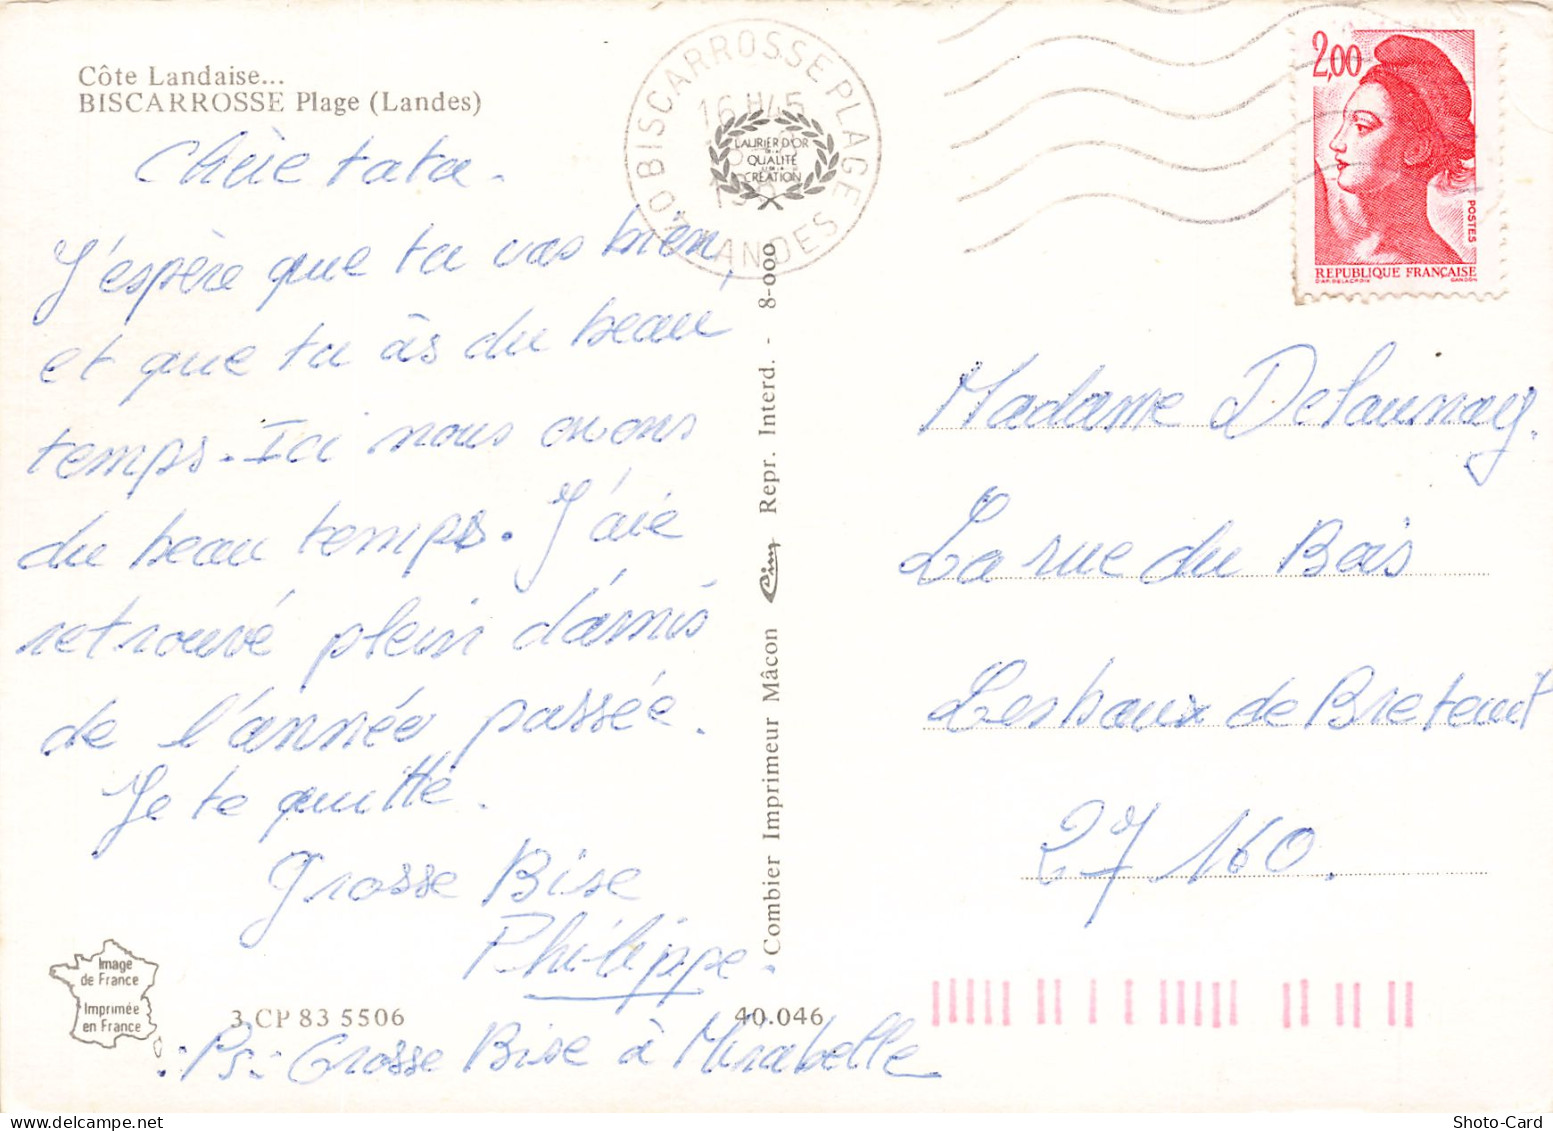 Côte Landaise...
BISCARROSSE Plage (Landes)
Chère tata.
J'espère que tu vas bien,
et que tu às du beau
temps. Ici nous avons
du beau temps. J'aie
retrouvé plein d'amis
de l'année passée.
Je te quitte.
Grosse Bise
Philippe.
Ps: Grosse Bise à Mirabelle
Image
de France
Imprimée
en France
3 CP 83 5506
40.046
Combier Imprimeur Mâcon Cim Repr. Interd. - 8-000
40 BISCARROSSE PLAGE
LANDES
16 H 45
LAURIER D'OR
DE LA
QUALITÉ
CRÉATION
2,00
POSTES
REPUBLIQUE FRANÇAISE
D'AP. DELACROIX
GANDON
Madame Delaunay.
La rue du Bois
Lesbaux de Breteuil
27 160.
Shoto-Card